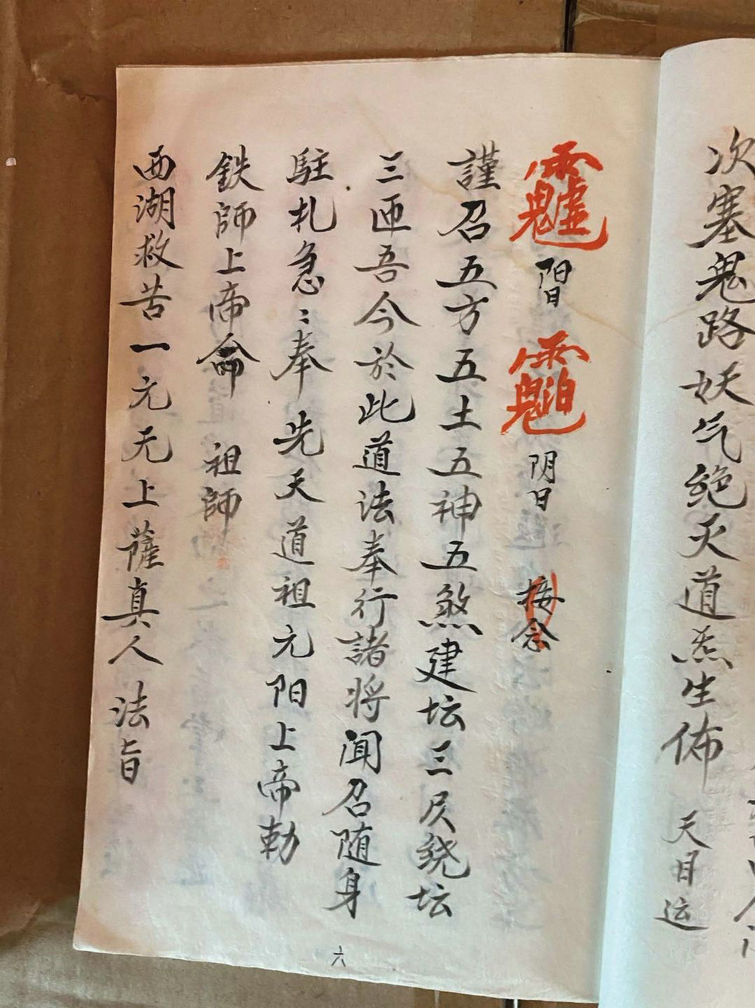 次塞鬼路妖气绝灭道炁生佈 天目运
阳日 阴日 接念
謹召五方五土五神五煞建坛三尺绕坛
三匝吾今於此道法奉行諸将闻召随身
駐札急〻奉先天道祖元阳上帝勅
鉄師上帝命 祖師
西湖救苦一元无上薩真人法旨
六